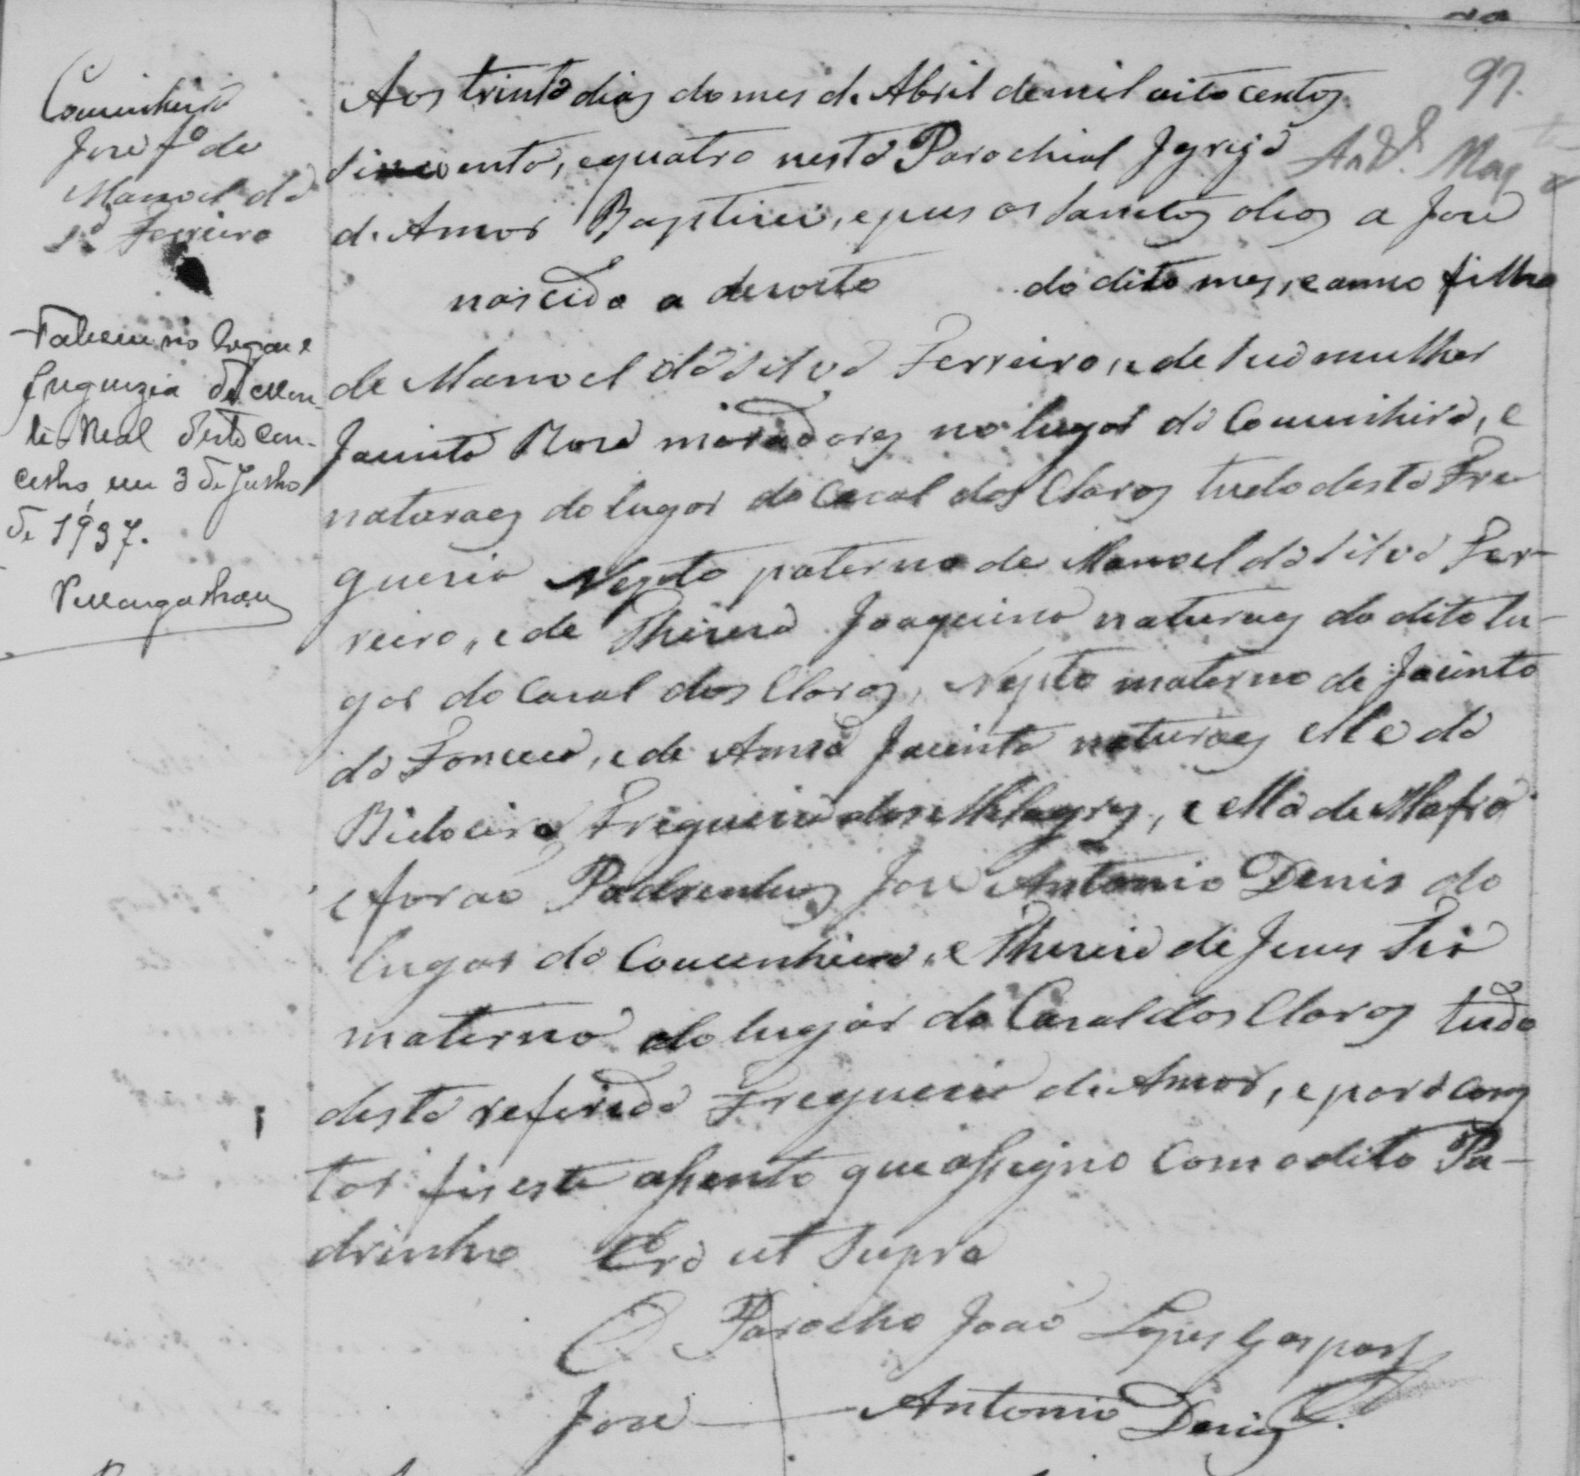 Couinheira
Jose fº de
Manoel da
Sª Ferreira
Faleceu no lugar e
freguezia de Mon-
te Real deste con-
celho, em 3 de Junho
de 1937.
97.
Aos trinta dias do mes de Abril de mil oito centos
sincoenta, e quatro nesta Parochial Igreja
de Amor Baptizei, e pus os Santos olios a Jose
nascido a desoito do dito mes, e anno filho
de Manoel da Silva Ferreira, e de sua mulher
Jacinta Roza moradores no lugar da Couinhira, e
naturaes do lugar do Casal dos Claros tudo desta Fre
guesia Nepto paterno de Manoel da Silva Fer-
reira, e de Thereza Joaquina naturaes do dito lu-
gar do Casal dos Claros, Nepto materno de Jacinto
da Fonceca, e de Anna Jacinta naturaes elle da
Bidoeira Freguesia dos Milagres, e ella de Mafra
e forao Padrinhos Jose Antonio Denis do
lugar da Couinheira, e Thereza de Jesus Tia
materna do lugar do Casal dos Claros tudo
desta referida Freguesia de Amor, e para cons
tar fis este assento que assigno com o dito Pa-
drinho Era ut Supra
O Parocho João Lopes Gaspar
Jose Antonio Deniz